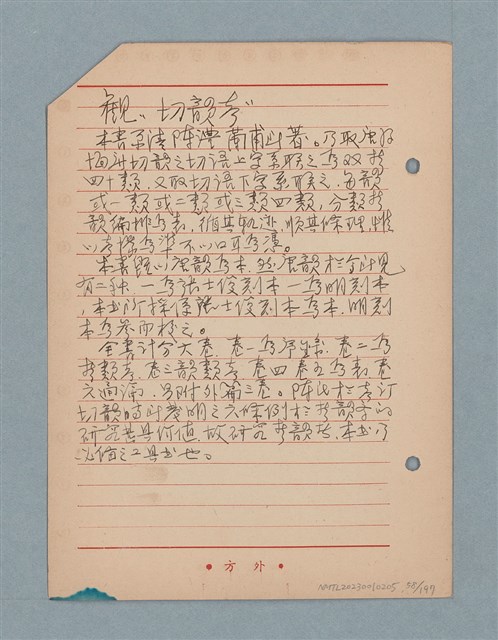 觀“切韻考”
本書系清陳澧蘭甫所著。乃取廣韻
切語上字系聯之為双声
四十類，又取切語下字系聯之，每韻
或一類或二類或三類四類，分類
韻編排為表，循其軌迹，順其條理，惟
以考據為準，不以口耳為憑。
本書既以廣韻為本，然廣韻於今所見
有二種，一為張士俊刻本，一為明刻本
，本書所採係張士俊刻本為本，明刻
本為參而校之。
全書計分六卷，卷一為序錄，卷二為
声類考，卷三韻類考，卷四卷五為表，卷
六通論，另附外篇三卷。陳氏於考訂
切韻時所發明之六條例於声韻學的
研究甚具價值，故研究声韻者，本書乃
必備之工具書也。
• 方 外 •
NMTL20230010205 58/197